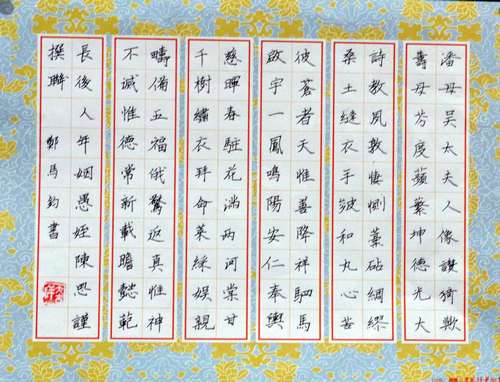 潘母吳太夫人像讚猗歟
壽母芬度蘋蘩坤德光大
詩教夙敦悽惻藁砧綢繆
桑土縫衣手皴和丸心苦
彼蒼者天惟善降祥駟馬
啟宇一鳳鳴陽安仁奉輿
慈暉春駐花滿兩河棠甘
千樹繡衣拜命萊綵娛親
疇備五福俄驚返真惟神
不滅惟德常新載瞻懿範
長後人年姻愚姪陳謹
撰聯 馬鈞書